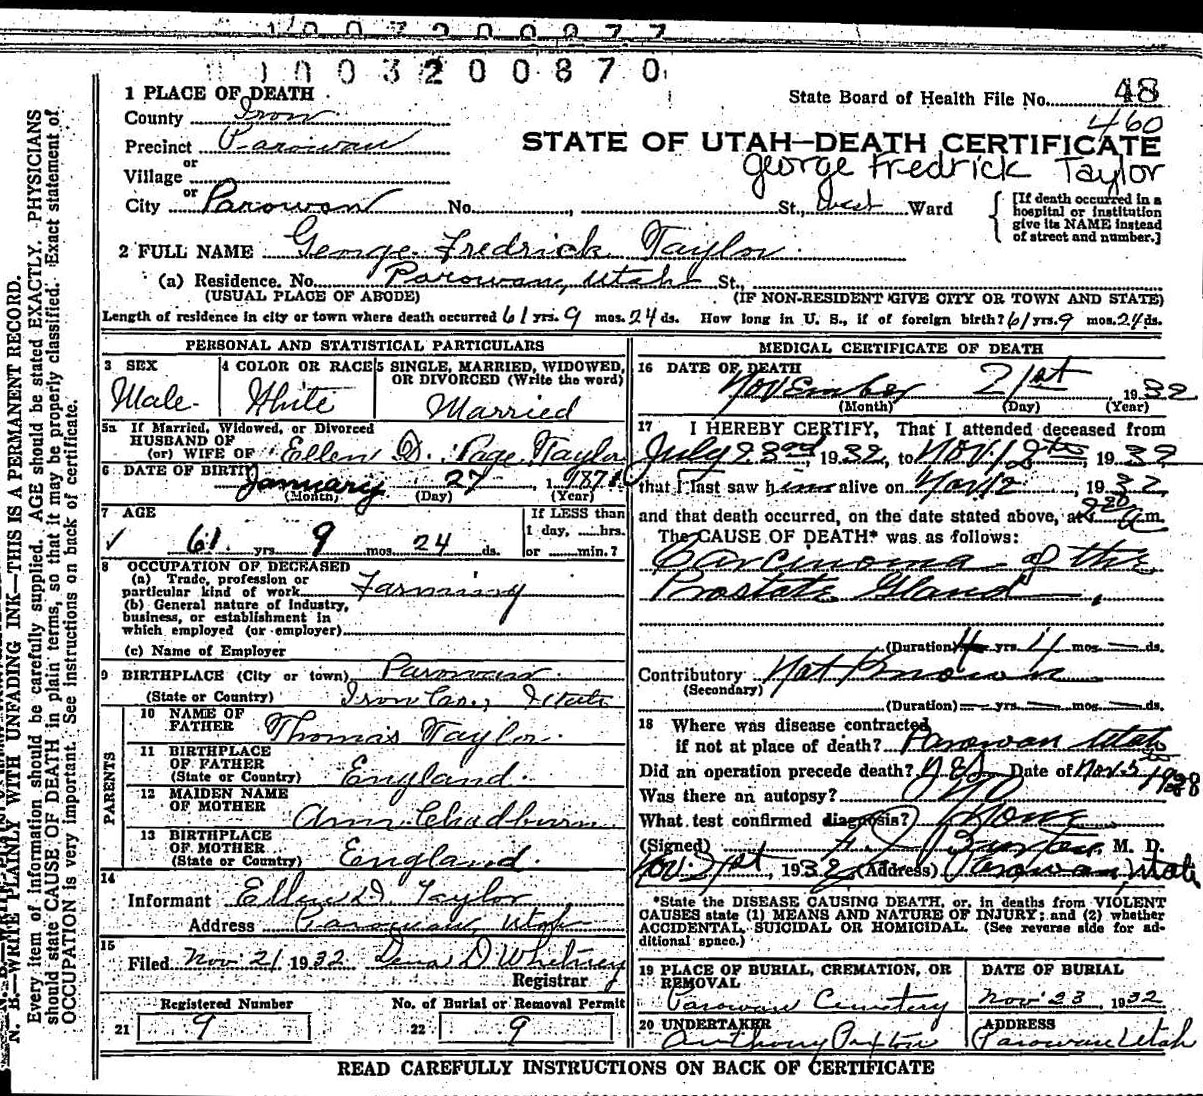 0 0 3 2 0 0 8 7 0
1 PLACE OF DEATH
State Board of Health File No. 48
County Iron
460
Precinct Parowan
STATE OF UTAH—DEATH CERTIFICATE
or
George Fredrick Taylor
Village
or
City Parowan No. , St., West Ward
[If death occurred in a hospital or institution give its NAME instead of street and number.]
2 FULL NAME George Fredrick Taylor
(a) Residence. No. Parowan, Utah St.,
(USUAL PLACE OF ABODE) (IF NON-RESIDENT GIVE CITY OR TOWN AND STATE)
Length of residence in city or town where death occurred 61 yrs. 9 mos. 24 ds. How long in U. S., if of foreign birth? 61 yrs. 9 mos. 24 ds.
PERSONAL AND STATISTICAL PARTICULARS
3 SEX
Male
4 COLOR OR RACE
White
5 SINGLE, MARRIED, WIDOWED, OR DIVORCED (Write the word)
Married
5a If Married, Widowed, or Divorced
HUSBAND OF
(or) WIFE OF Ellen D. Page Taylor
6 DATE OF BIRTH January 27 1871
(Month) (Day) (Year)
7 AGE
61 yrs. 9 mos. 24 ds.
If LESS than
1 day, hrs.
or min.?
8 OCCUPATION OF DECEASED
(a) Trade, profession or
particular kind of work Farming
(b) General nature of industry,
business, or establishment in
which employed (or employer)
(c) Name of Employer
9 BIRTHPLACE (City or town) Parowan
(State or Country) Iron Co., Utah
PARENTS
10 NAME OF
FATHER Thomas Taylor
11 BIRTHPLACE
OF FATHER
(State or Country) England.
12 MAIDEN NAME
OF MOTHER Ann Chadburn
13 BIRTHPLACE
OF MOTHER
(State or Country) England.
14
Informant Ellen D. Taylor
Address Parowan, Utah
15
Filed Nov 21 1932 Lena D Whitney
Registrar
Registered Number No. of Burial or Removal Permit
21 9 22 9
MEDICAL CERTIFICATE OF DEATH
16 DATE OF DEATH
November 21st 1932
(Month) (Day) (Year)
17 I HEREBY CERTIFY, That I attended deceased from
July 23rd, 1932, to Nov. 12th, 1932
that I last saw him alive on Nov 12, 1932,
and that death occurred, on the date stated above, at a m.
The CAUSE OF DEATH* was as follows:
Carcinoma of the
Prostate Gland
(Duration) yrs. 4 mos. ds.
Contributory Not Known
(Secondary)
(Duration) yrs. mos. ds.
18 Where was disease contracted
if not at place of death? Parowan Utah
Did an operation precede death? Yes Date of Nov. 5th 1928
Was there an autopsy? No
What test confirmed diagnosis? None
(Signed) Burton, M. D.
Nov. 21st, 1932 (Address) Parowan, Utah
*State the DISEASE CAUSING DEATH, or, in deaths from VIOLENT
CAUSES state (1) MEANS AND NATURE OF INJURY; and (2) whether
ACCIDENTAL, SUICIDAL OR HOMICIDAL. (See reverse side for ad-
ditional space.)
19 PLACE OF BURIAL, CREMATION, OR
REMOVAL
Parowan Cemetery
DATE OF BURIAL
Nov 23 1932
20 UNDERTAKER
Anthony Paxton
ADDRESS
Parowan Utah
READ CAREFULLY INSTRUCTIONS ON BACK OF CERTIFICATE
N. B.—WRITE PLAINLY WITH UNFADING INK—THIS IS A PERMANENT RECORD.
Every item of information should be carefully supplied. AGE should be stated EXACTLY. PHYSICIANS
should state CAUSE OF DEATH in plain terms, so that it may be properly classified. Exact statement of
OCCUPATION is very important. See instructions on back of certificate.